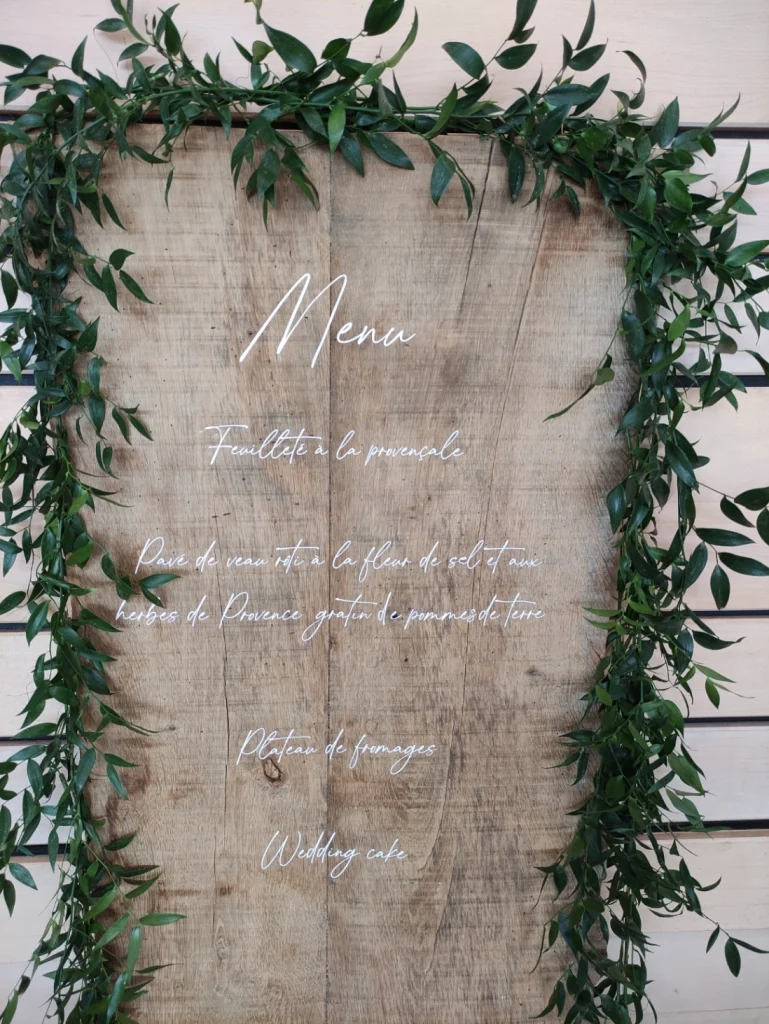 Menu
Feuilleté à la provençale
Pavé de veau rôti à la fleur de sel et aux
herbes de Provence gratin de pommes de terre
Plateau de fromages
Wedding cake